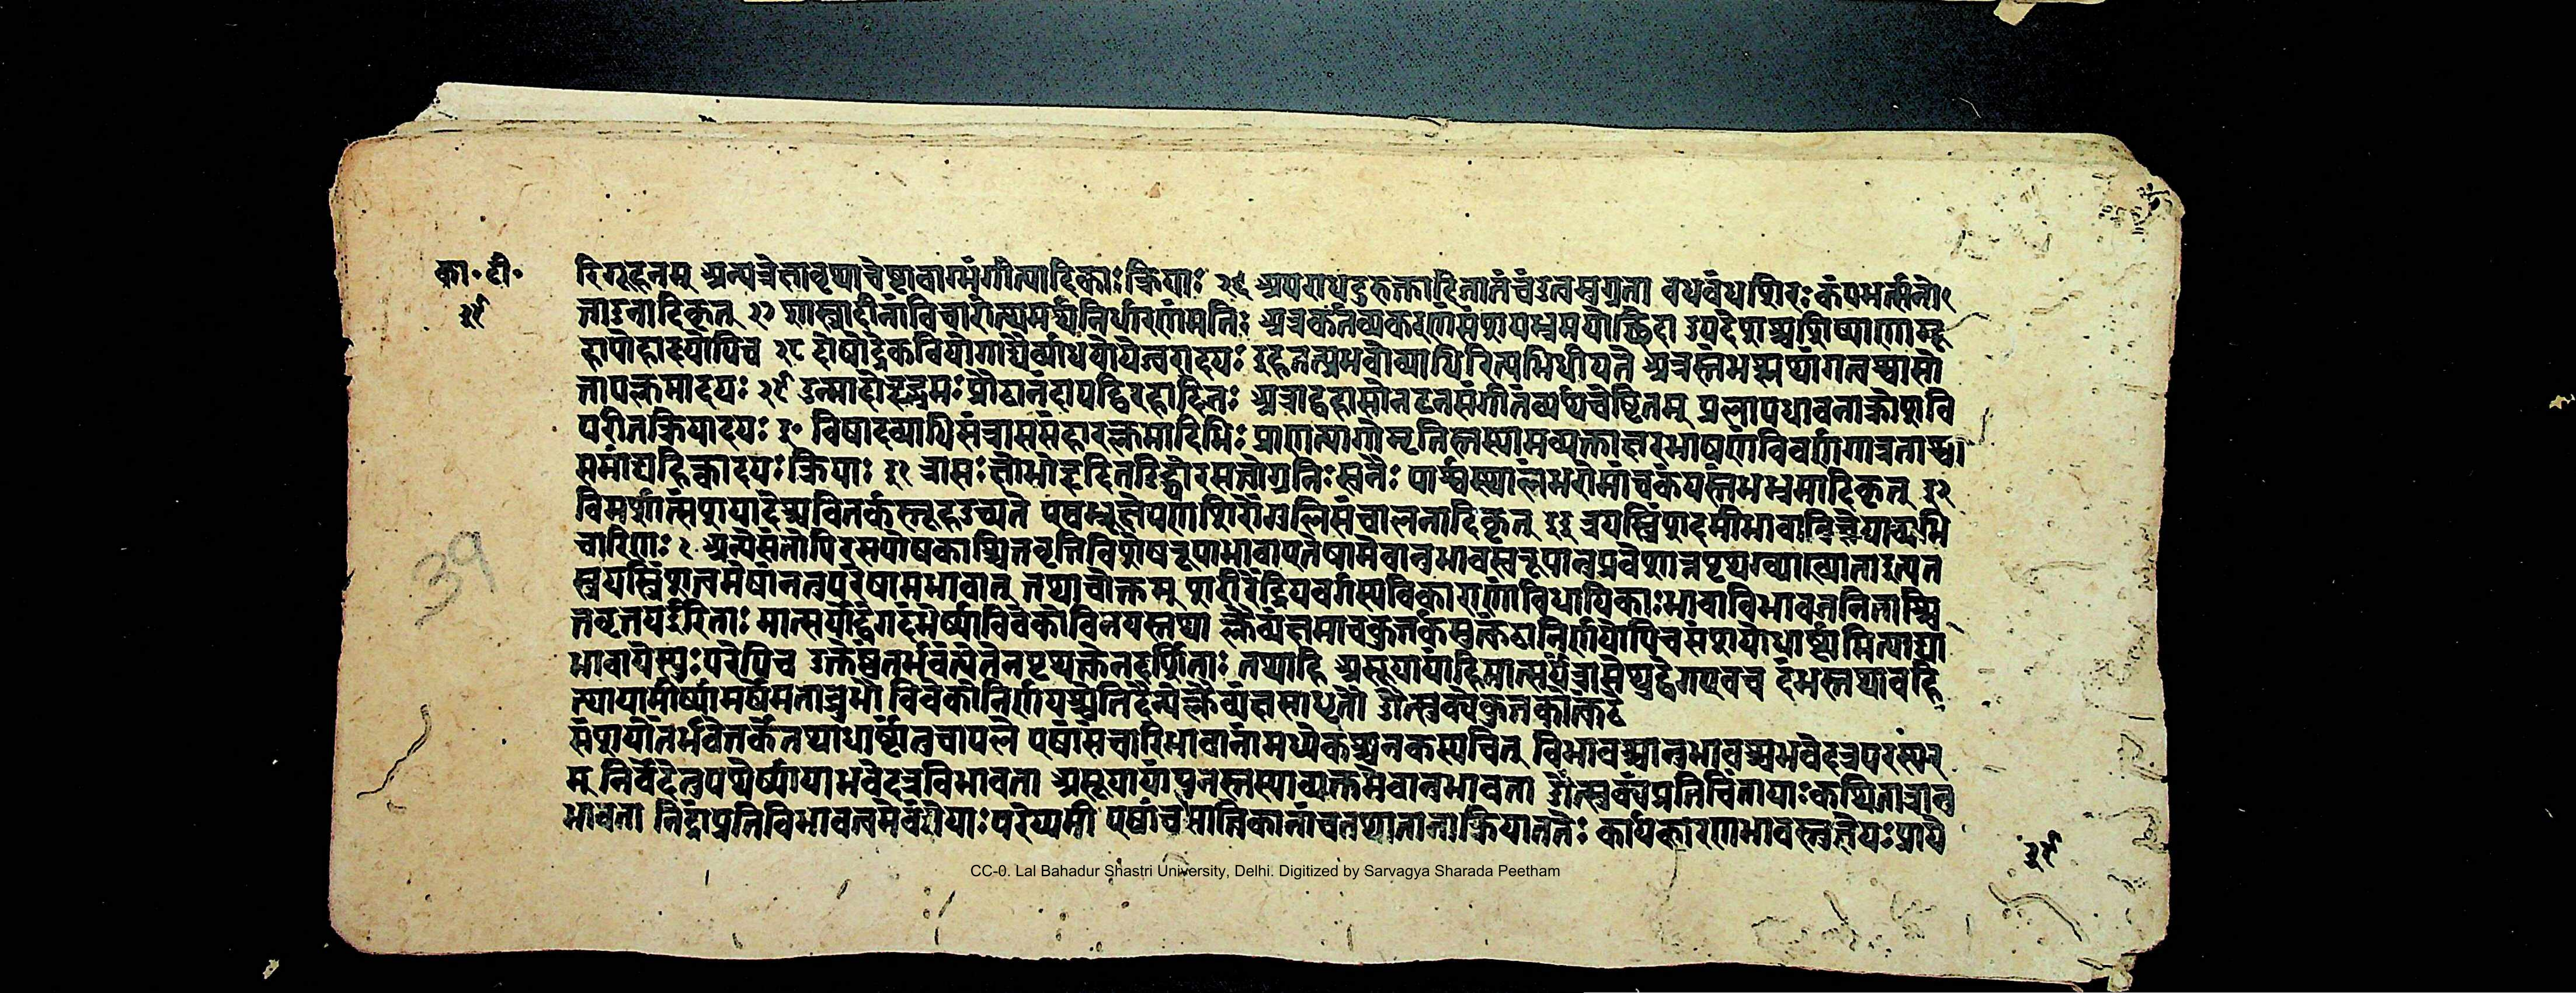 का॰टी॰
३९
रिगूहनम् अन्यत्रेक्षावृथाचेष्टावाग्भंगीत्यादिकाःक्रियाः २६ अपराधदुरुक्तादिजातंचंडत्वमुग्रता वधबंधशिरःकंपभर्त्सनो
त्ताडनादिकृत् २७ शास्त्रादीनांविचारोत्थमर्थनिर्धारणंमतिः अत्रकर्तव्यकरणंसंशयभ्रमयोश्छिदा उपदेशश्चशिष्याणामू
हापोहादयोपिच २८ दोषोद्रेकवियोगाद्यैर्व्याधयोयेज्वरादयः इहतत्प्रभवोव्याधिरित्यभिधीयते अत्रस्तंभश्लथांगत्वश्वासो
त्तापक्लमादयः २९ उन्मादोहृद्भ्रमःप्रौढानंदापद्विरहादितः अत्राट्टहासोनटनंसंगीतंव्यर्थचेष्टितम् प्रलापधावनाक्रोशवि
परीतक्रियादयः ३० विषादव्याधिसंत्राससंहारक्लमादिभिः प्राणत्यागोमृतिस्तस्यामव्यक्ताक्षरभाषणंविवर्णगात्रताश्वा
समांद्यहिक्कादयःक्रियाः ३१ त्रासःक्षोभोहृदितडिद्घोरसत्वोग्रनिःस्वनैः पार्श्वस्थालंभरोमांचकंपस्तंभभ्रमादिकृत् ३२
विमर्शात्संशयादेश्चवितर्कस्तूहउच्यते एषभ्रूक्षेपणशिरोंगुलिसंचालनादिकृत् ३३ त्रयस्त्रिंशदमीभावाविज्ञेयाव्यभि
चारिणः १ अन्येसंतोपिरसपोषकाश्चित्तवृत्तिविशेषरूपाभावाएतेषामेवानुभावस्वरूपानुप्रवेशान्नपृथग्व्याख्याताइत्यत
स्त्रयस्त्रिंशत्त्वमेषांनतुपरेषामभावात् तथाचोक्तम् शरीरेंद्रियवर्गस्यविकाराणांविधायिकाःभावाविभावजनिताश्चि
त्तवृत्तयईरिताः मात्सर्योद्वेगदंभेर्ष्याविवेकोविनयस्तथा क्लैब्यंक्षमाचकुतर्कमुत्कंठानिर्णयोपिचसंशयोधार्ष्ट्यमित्याद्या
भावायेस्युःपरेपिच उक्तेष्वंतर्भवंत्येतेनपृथक्त्वेनदर्शिताः तथाहि असूयायांहिमात्सर्यंत्रासेप्युद्वेगएवच दंभस्तथावहि
त्थायामीर्ष्यामर्षेमतावुभौ विवेकोनिर्णयश्चेतिदैन्येक्लैब्यंक्षमाधृतौ औत्सुक्यकुतकोत्कंठे
संशयोंतर्भवेत्तर्केतथाधार्ष्ट्यंतुचापले एषांसंचारिभावानांमध्येकश्चनकस्यचित् विभावश्चानुभावश्चभवेदत्रपरस्पर
म् निर्वेदेतुयथेर्ष्यायाभवेदत्रविभावता असूयायांपुनस्तस्याव्यक्तमेवानुभावता औत्सुक्यंप्रतिचिंतायाःकथितात्रानु
भावता निद्रांप्रतिविभावत्वमेवंज्ञेयाःपरेप्यमी एषांचसात्विकानांचतथानानाक्रियाततेः कार्यकारणभावस्तुज्ञेयःप्राये
३९
39
CC-0. Lal Bahadur Shastri University, Delhi. Digitized by Sarvagya Sharada Peetham